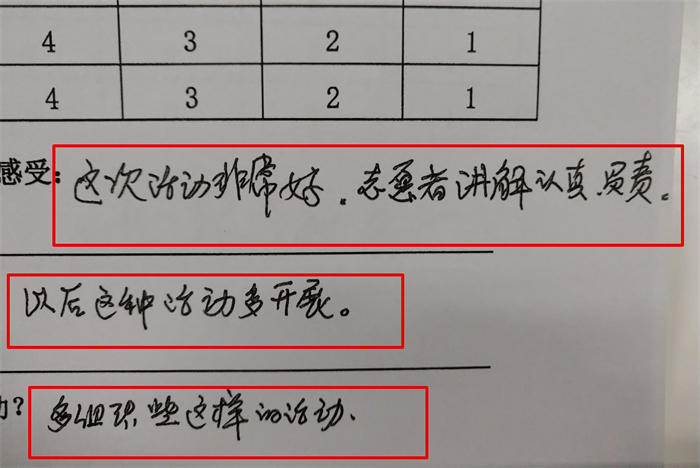 4 3 2 1
4 3 2 1
感受：这次活动非常好。志愿者讲解认真负责。
以后这种活动多开展。
？多组织些这样的活动.